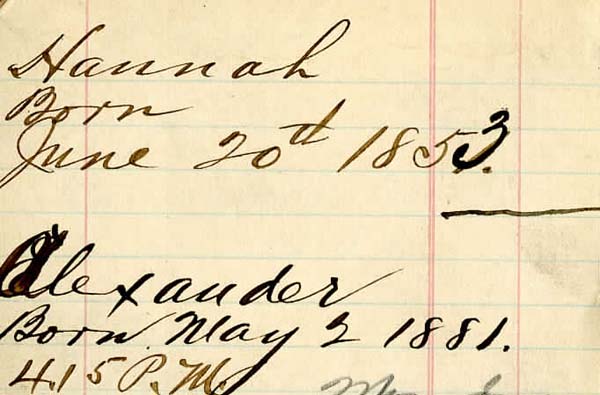 Hannah
Born
June 20th 1853.
Alexander
Born May 2 1881.
4.15 P.M.